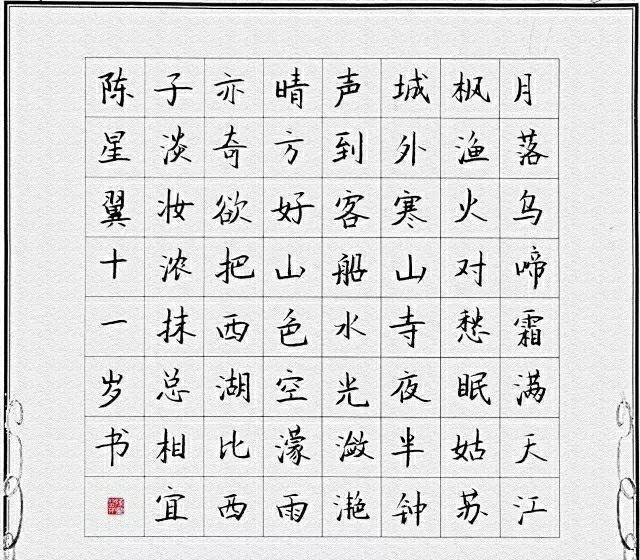 月落乌啼霜满天江
枫渔火对愁眠姑苏
城外寒山寺夜半钟
声到客船水光潋滟
晴方好山色空濛雨
亦奇欲把西湖比西
子淡妆浓抹总相宜
陈星翼十一岁书